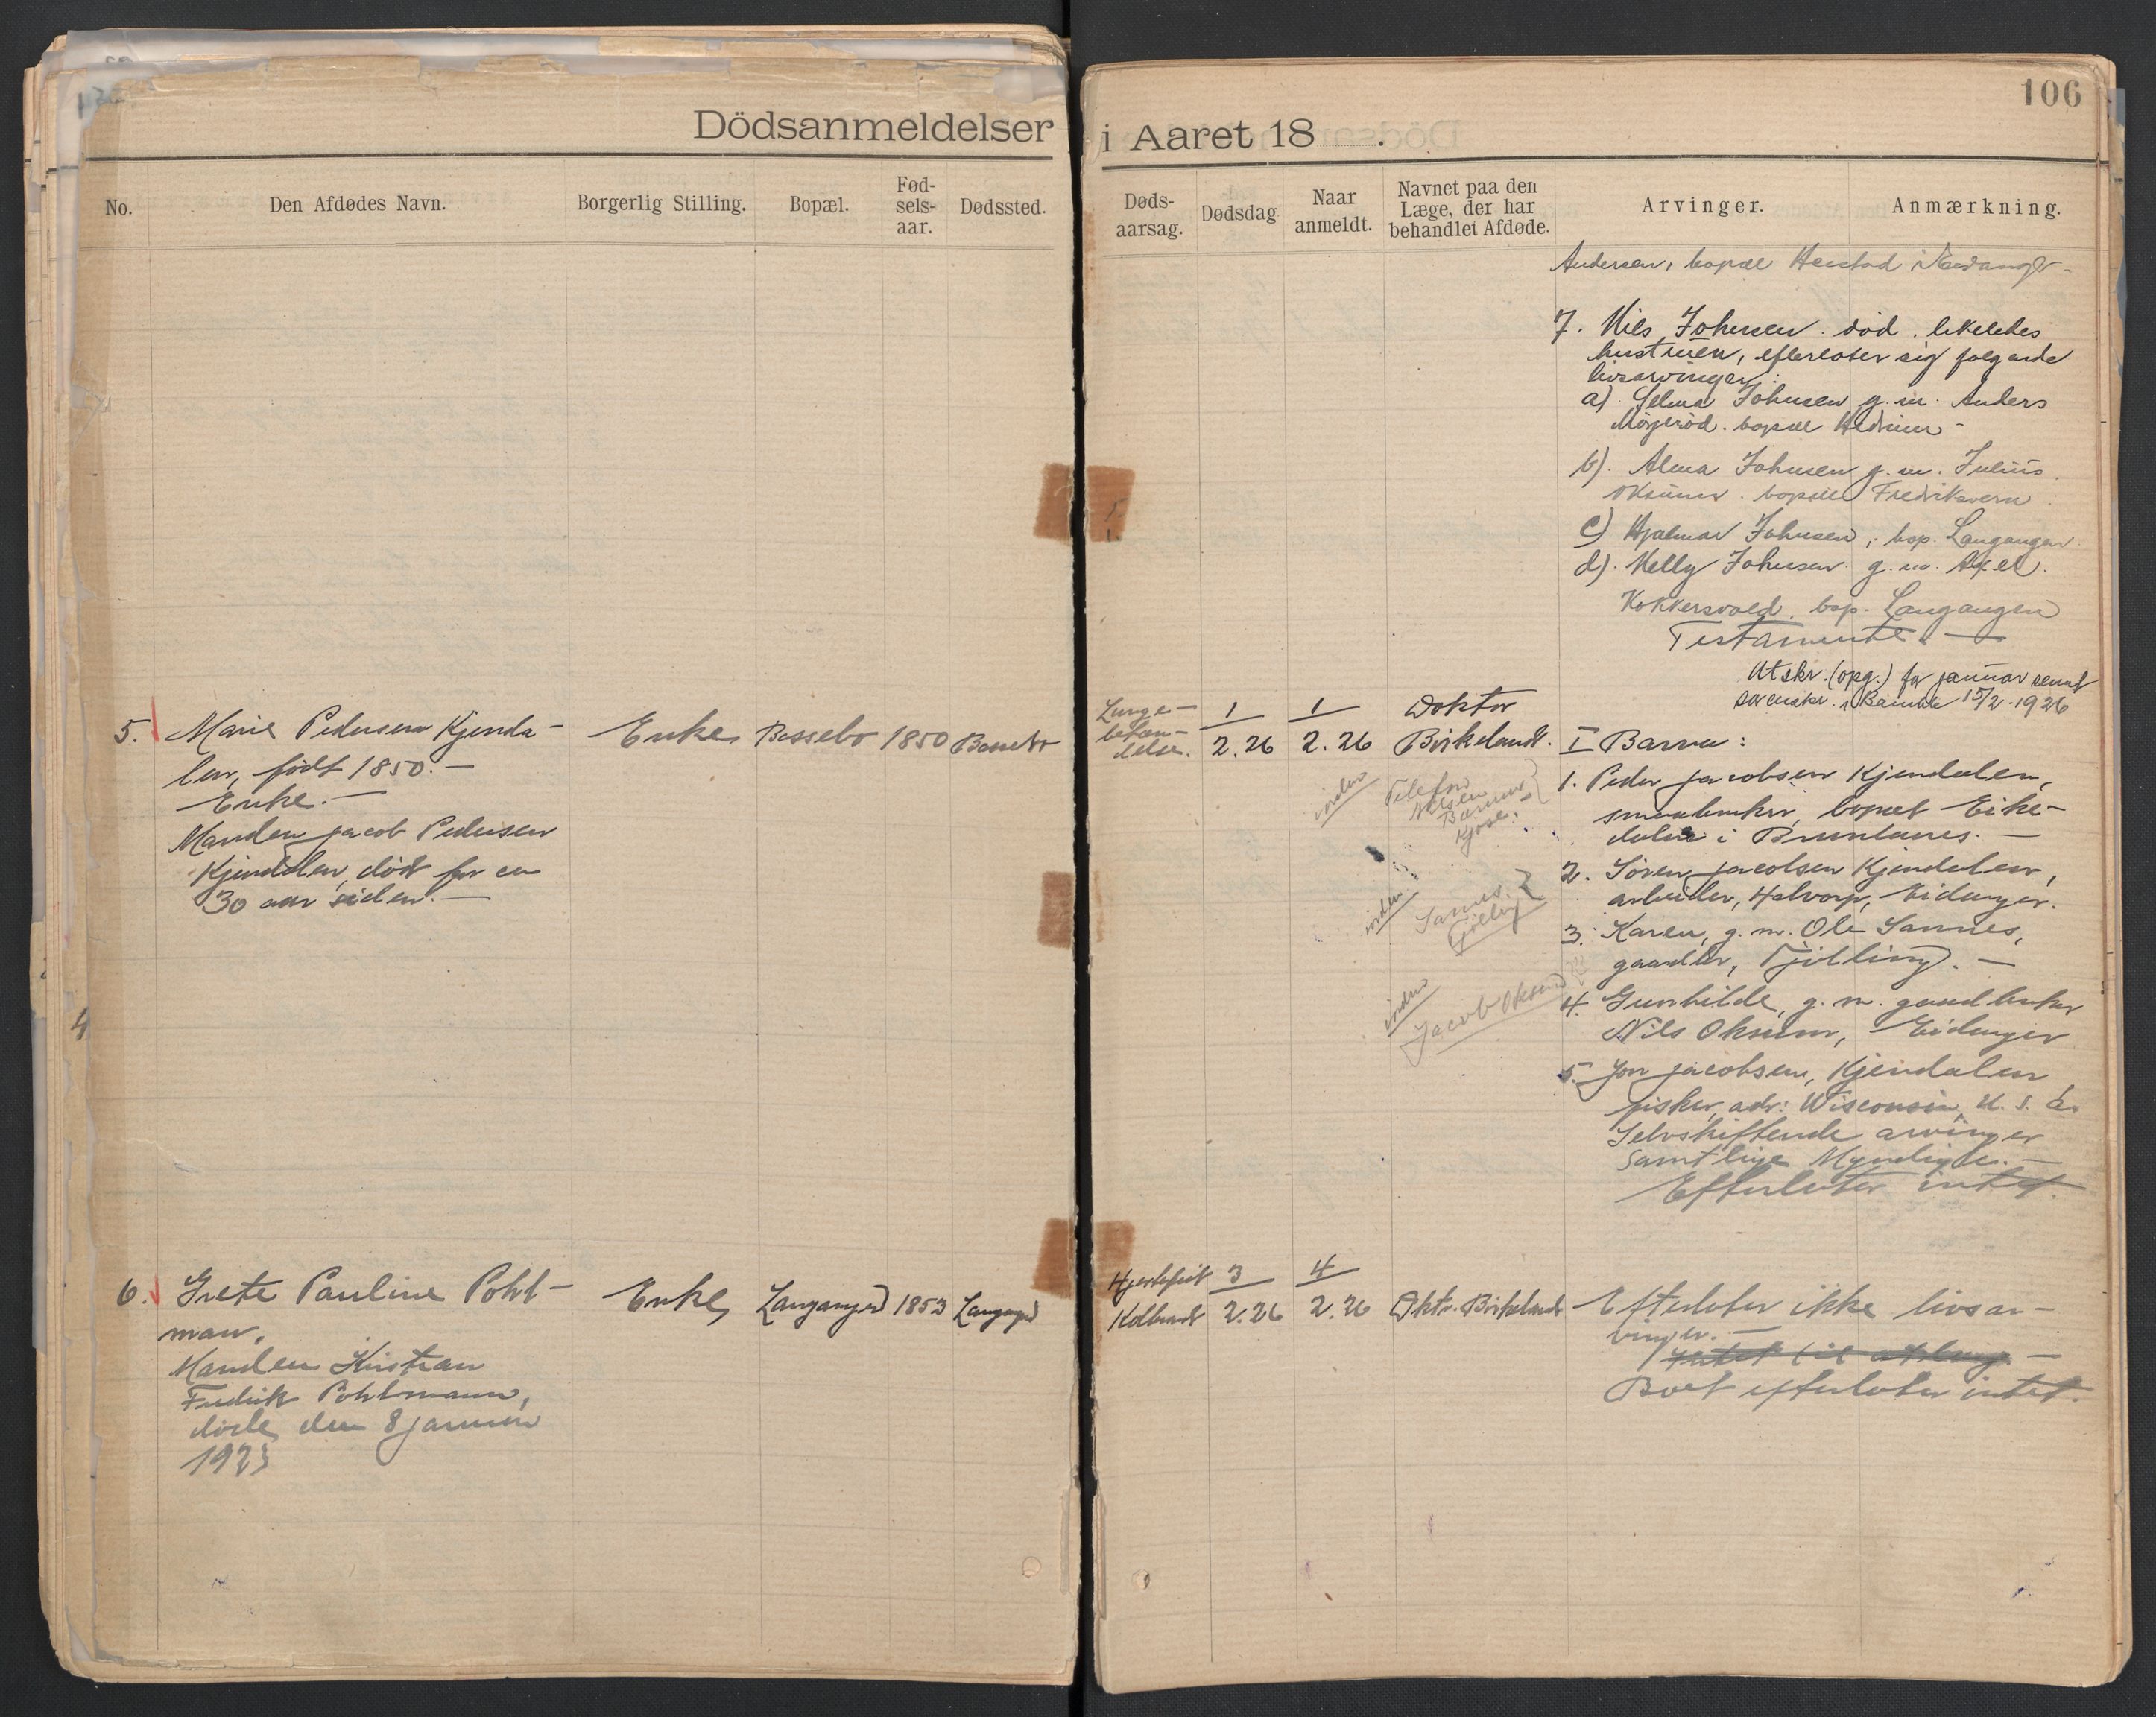 106
Dödsanmeldelser i Aaret 18 .
No.
Den Afdødes Navn.
Borgerlig Stilling.
Bopæl.
Fød-
sels-
aar.
Dødssted.
Døds-
aarsag.
Dødsdag
Naar
anmeldt.
Navnet paa den
Læge, der har
behandlet Afdøde.
Arvinger.
Anmærkning.
Andersen, bopæl
7. Nils Johnsen. död. likeledes
hustruen, efterlater sig følgende
livsarvinger:
a). Selma Johnsen g.m. Anders
bopæl Hedrum -
b). Alma Johnsen g.m. Julius
Oksum. bopæl Fredriksvern.
c) Hjalmar Johnsen, bop. Langangen.
d). Nelly Johnsen g.m. Axel.
Kokkersvold. bop. Langangen
Testamente. —
Utskr. (opg.) for januar sendt
sorenskr. i Bamble 15/2-1926
5. Marie Pedersen Kjenda-
len, født 1850. —
Enke. —
Manden Jacob Pedersen
Kjendalen, død for en
30 aar siden. —
Enke
Bassebo
1850
Bassebo
Lunge-
beten-
delse.
1
2.26
1
2.26
Doktor
Birkeland.
Telefon
Nilsen
Kjose.
Sannes.
Tjölling
Jacob Oksum
I Barna:
1. Peder Jacobsen Kjendalen,
smaabruker, bopæl Eike-
dalen i Brunlanes. —
2. Sören Jacobsen Kjendalen,
arbeider, Halvarp, Eidanger.
3. Karen, g.m. Ole Sannes,
gaardbr, Tjölling. —
4. Gunhilde, g.m. gaardbruker
Nils Oksum, Eidanger
5. Jon Jacobsen, Kjendalen
fisker, adr: Wisconsin, U.S.A.
Selvskiftende arvinger
Samtlige Myndige. —
Efterlater intet.
6. Grete Pauline Pohl-
man.
Manden Kristian
Fredrik Pohlmann,
døde den 8 januar
1923
Enke
Langangen
1853
Langangen
Hjertefeil
Koldbrand
3
2.26
4
2.26
Dktr. Birkeland
Efterlater ikke livsar-
vinger. —
Boet efterlater intet.